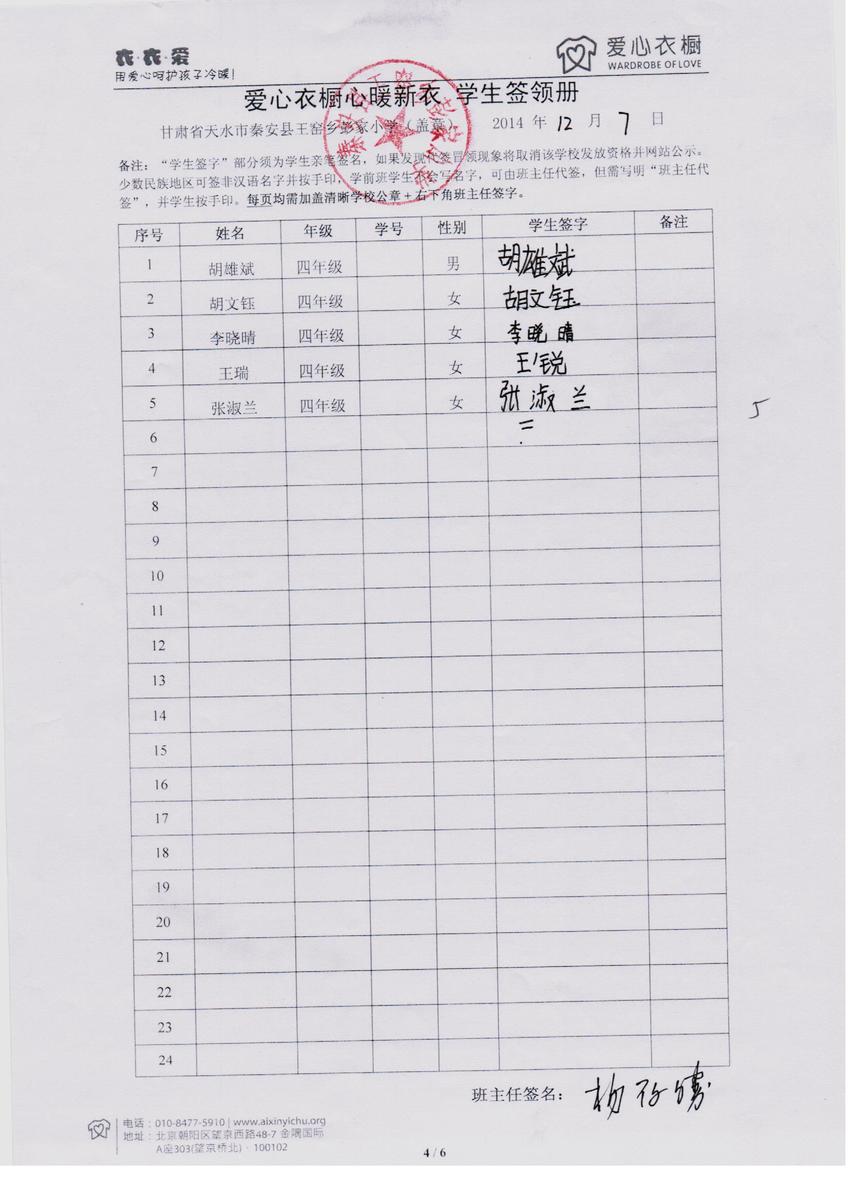 衣·衣·爱
用爱心呵护孩子冷暖!
爱心衣橱
WARDROBE OF LOVE
爱心衣橱心暖新衣 学生签领册
甘肃省天水市秦安县王窑乡彭家小学（盖章） 2014 年 12 月 7 日
备注：“学生签字”部分须为学生亲笔签名，如果发现代签冒领现象将取消该学校发放资格并网站公示。
少数民族地区可签非汉语名字并按手印，学前班学生不会写名字，可由班主任代签，但需写明“班主任代
签”，并学生按手印。每页均需加盖清晰学校公章+右下角班主任签字。
序号 姓名 年级 学号 性别 学生签字 备注
1 胡雄斌 四年级 男 胡雄斌
2 胡文钰 四年级 女 胡文钰
3 李晓晴 四年级 女 李晓晴
4 王瑞 四年级 女 王锐
5 张淑兰 四年级 女 张淑兰
5
6
7
8
9
10
11
12
13
14
15
16
17
18
19
20
21
22
23
24
班主任签名：杨
电话：010-8477-5910 | www.aixinyichu.org
地址：北京朝阳区望京西路48-7 金隅国际
A座303(望京桥北) · 100102
4 / 6